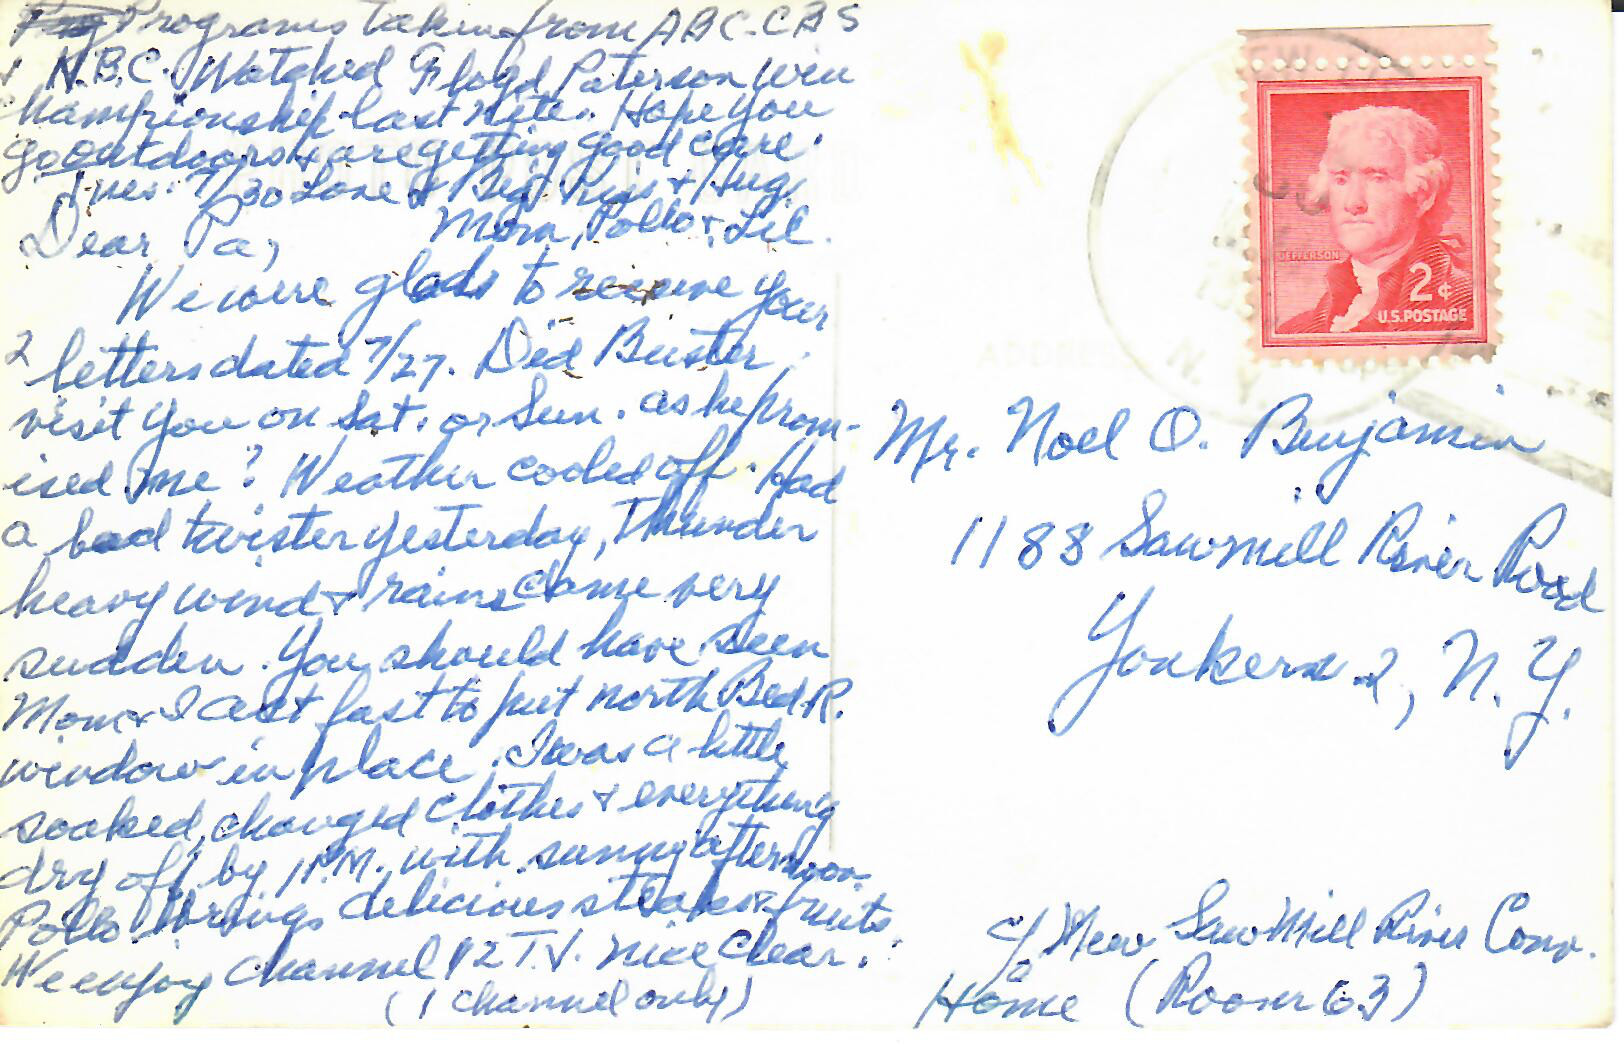 Programs taken from A B C - C B S
+ N. B. C. Watched Floyd Paterson win
Championship last nite. Hope you
go outdoors + are getting good care.
Tues. 7/30 Love & Big Kiss + Hug.
Mom, Pollo + Lil.
Dear Pa,
We were glads to receive your
2 letters dated 7/27. Did Buster
visit you on Sat. or Sun. as he prom-
ised me? Weather cooled off. Had
a bad twister yesterday, Thunder
heavy wind + rains came very
sudden. You should have seen
Mom + I act fast to put north Bed R.
window in place. I was a little
soaked, changed clothes + everything
dry off by 1 P.M. with sunny afternoon.
Pollo brings delicious steaks + fruits.
We enjoy Channel 12 T.V. nice clear.
(1 channel only)
N. Y.
JEFFERSON
2¢
U.S. POSTAGE
ADDRESS
Mr. Noel O. Benjamin
1188 Sawmill River Road
Yonkers 2, N. Y.
c/o New Saw Mill River Conv.
Home (Room 63)